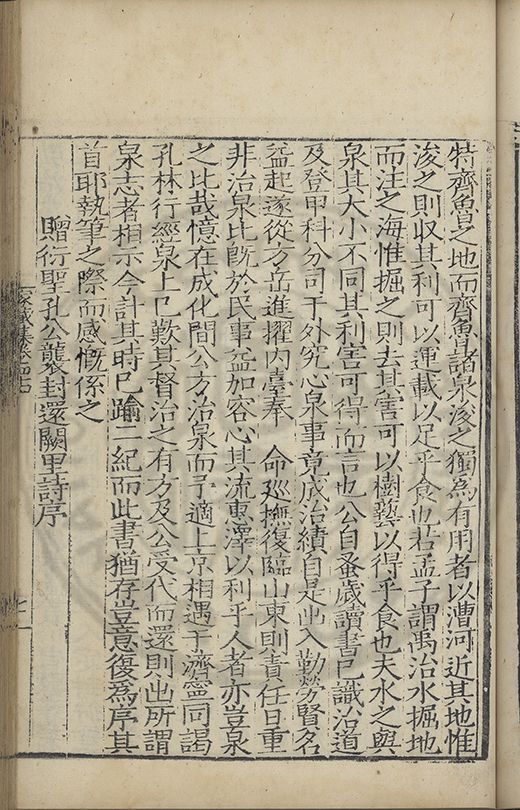 特齊魯之地而齊魯諸泉浚之獨為有用者以漕河近其地惟
浚之則收其利可以運載以足乎食也若孟子謂禹治水掘地
而注之海惟掘之則去其害可以樹藝以得乎食也夫水之與
泉其大小不同其利害可得而言也公自蚤歲讀書已識治道
及登甲科分司于外究心泉事竟成治績自是出入勤勞賢名
益起遂從方岳進擢内臺奉 命巡撫復臨山東則責任日重
非治泉比既於民事益加容心其流惠澤以利乎人者亦豈泉
之比哉憶在成化間公方治泉而予適上京相遇于濟寧同謁
孔林行經泉上已歎其督治之有方及公受代而還則出所謂
泉志者相示今計其時已踰二紀而此書猶存豈意復為序其
首耶執筆之際而感慨係之
贈衍聖孔公襲封還闕里詩序
家藏集卷